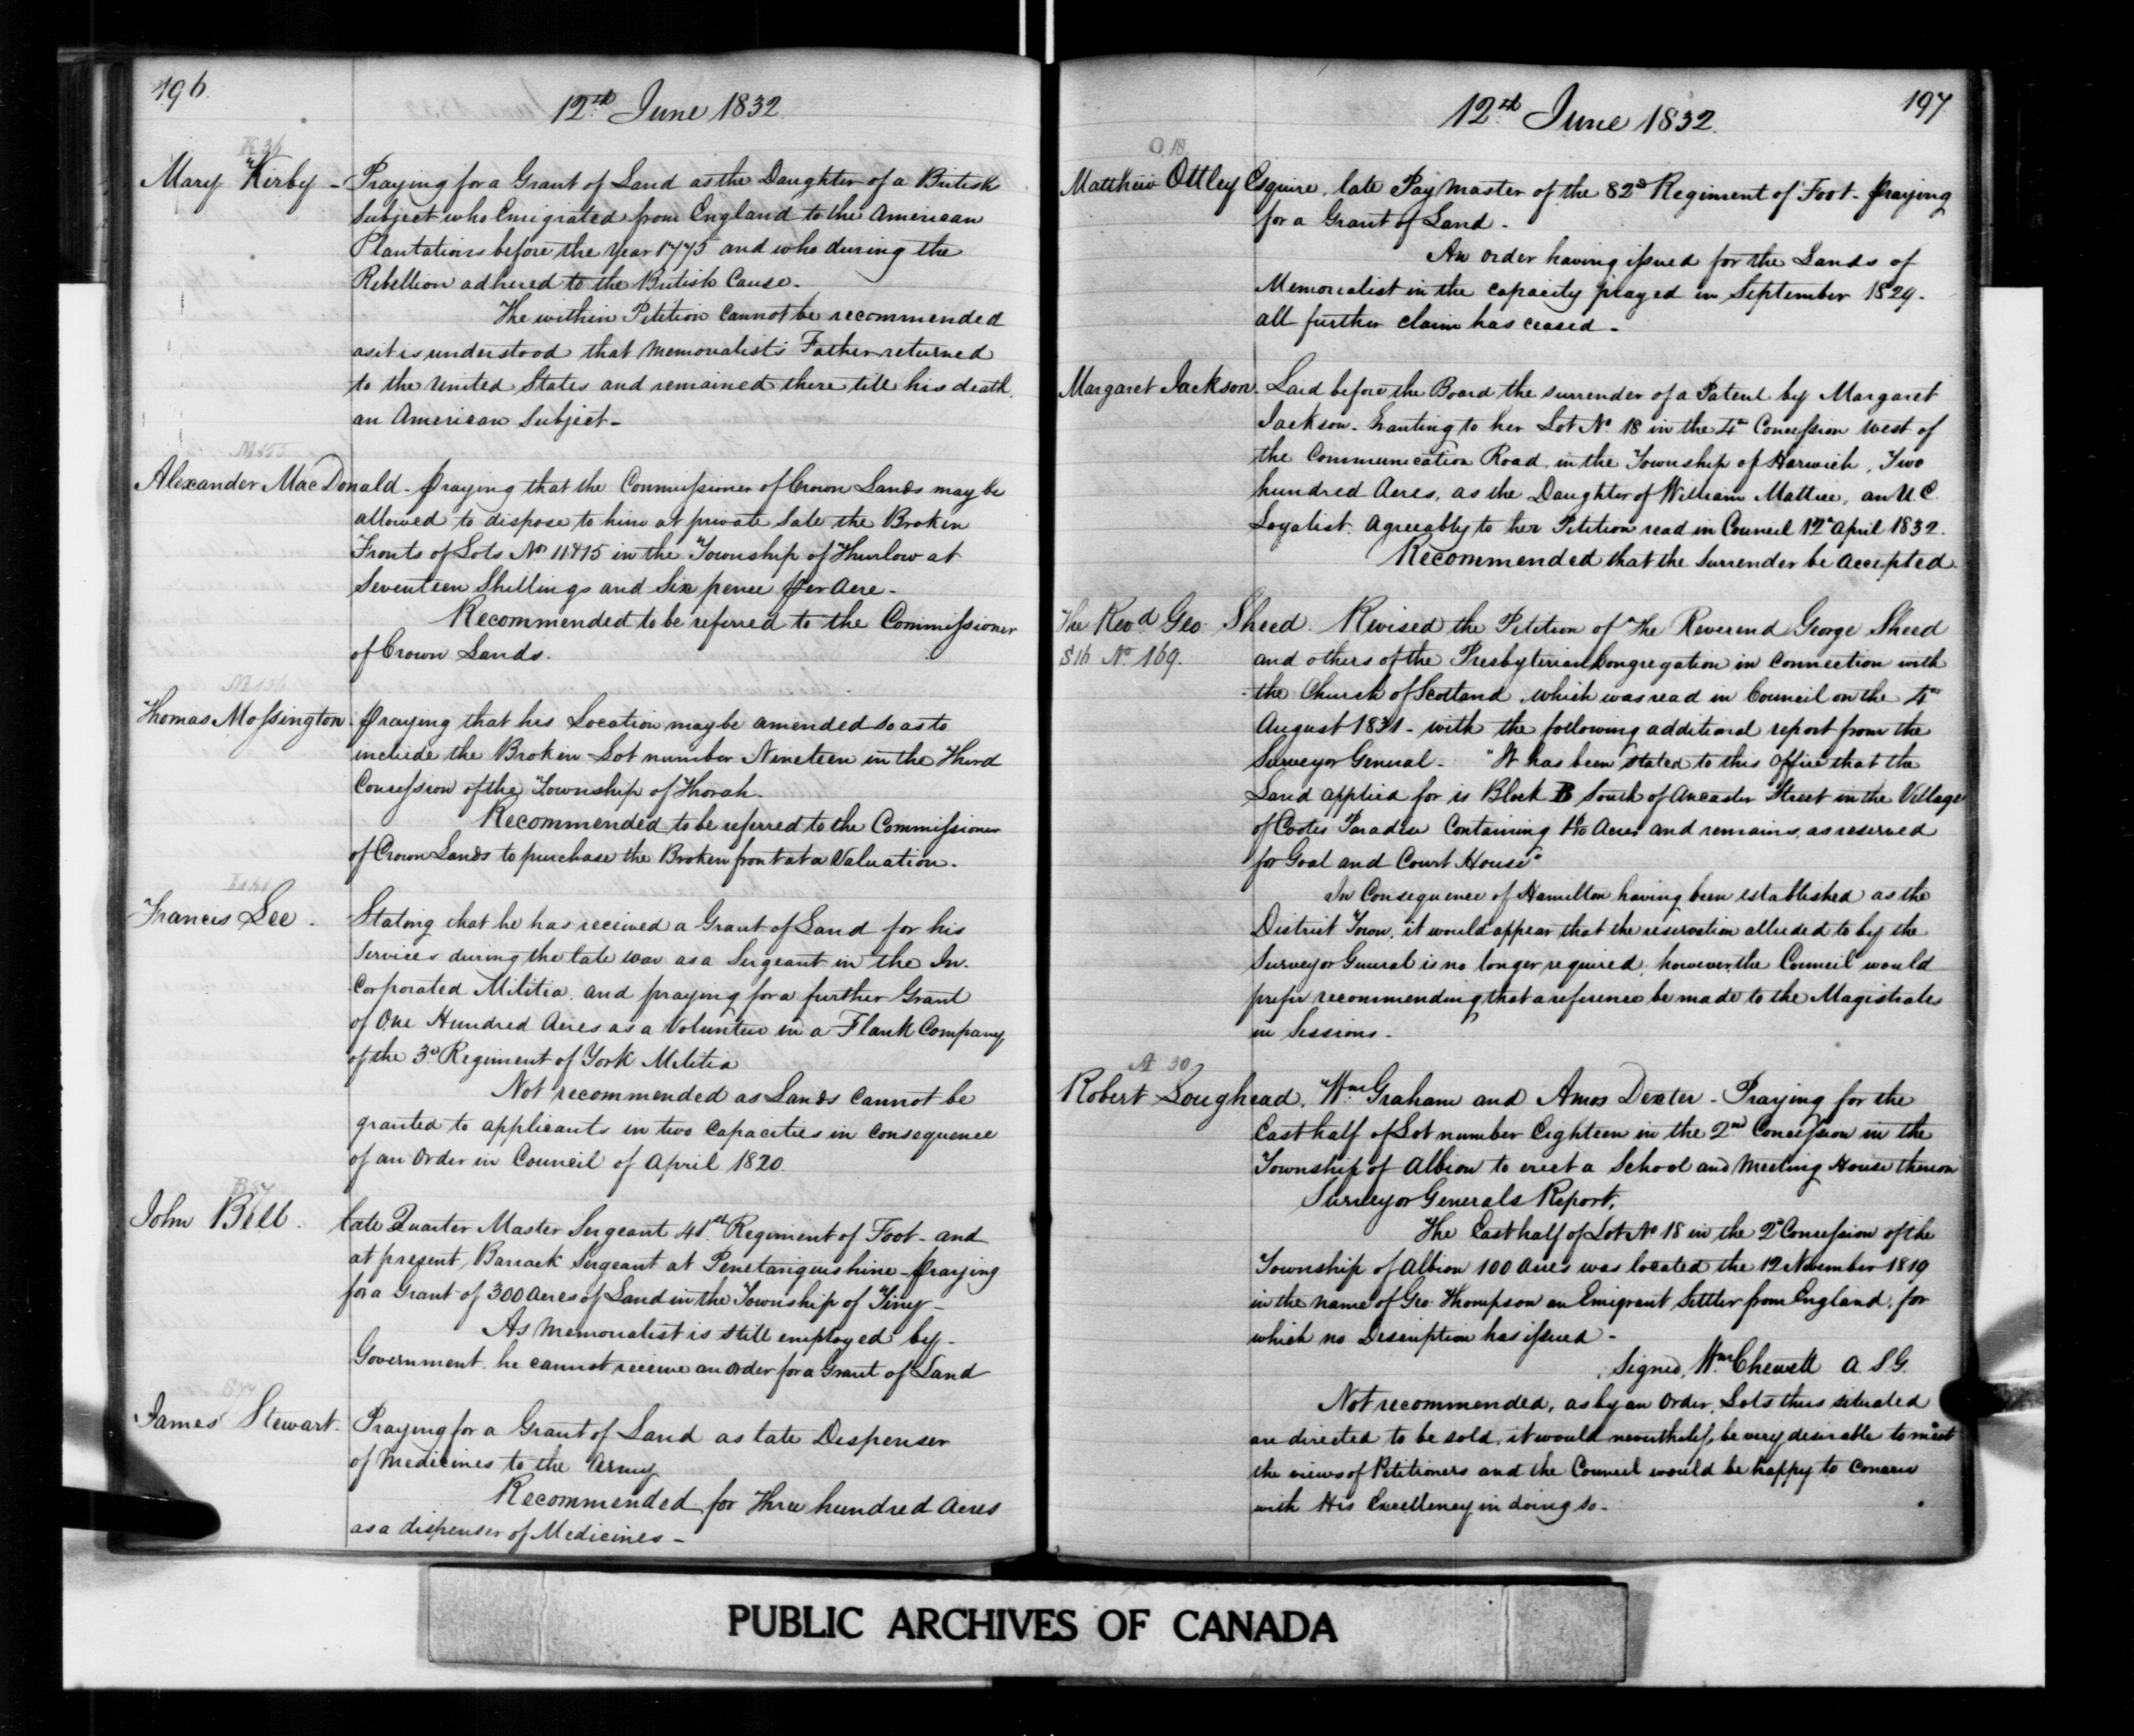 196.
12th June 1832
K 36
Mary Kirby - Praying for a Grant of Land as the Daughter of a British
Subject who Emigrated from England to the American
Plantations before the year 1775 and who during the
Rebellion adhered to the British Cause.
The within Petition cannot be recommended
as it is understood that Memorialist's Father returned
to the United States and remained there till his death,
an American Subject -
Alexander MacDonald - praying that the Commissioner of Crown Lands may be
allowed to dispose to him at private Sale the Broken
Fronts of Lots Nos 11 & 15 in the Township of Thurlow at
Seventeen Shillings and Six pence per Acre -
Recommended to be referred to the Commissioner
of Crown Lands.
M 136
Thomas Mossington. praying that his Location may be amended so as to
include the Broken Lot number Nineteen in the Third
Concession of the Township of Thorah.
Recommended to be referred to the Commissioner
of Crown Lands to purchase the Broken front at a Valuation.
Francis Lee. Stating that he has received a Grant of Land for his
Services during the late war as a Sergeant in the In-
corporated Militia, and praying for a further Grant
of One Hundred Acres as a Volunteer in a Flank Company
of the 3d Regiment of York Militia
Not recommended as Lands cannot be
granted to applicants in two Capacities in consequence
of an Order in Council of April 1820.
John Bell. late Quarter Master Sergeant 41st Regiment of Foot - and
at present, Barrack Sergeant at Penetanguishine - praying
for a Grant of 300 acres of Land in the Township of Tiny -
As Memorialist is still employed by
Government, he cannot receive an order for a Grant of Land
James Stewart. Praying for a Grant of Land as late Dispenser
of Medicines to the Army
Recommended for Three hundred Acres
as a dispenser of Medicines -
12th June 1832.
197
O 18.
Matthew Ottley Esquire, late Paymaster of the 82d Regiment of Foot - praying
for a Grant of Land -
An order having issued for the Lands of
Memorialist in the capacity prayed in September 1829.
all further claim has ceased -
Margaret Jackson. Laid before the Board the surrender of a Patent by Margaret
Jackson. Granting to her Lot No 18 in the 4th Concession West of
the Communication Road, in the Township of Harwich, Two
hundred Acres, as the Daughter of William Mattice, an U. E.
Loyalist. Agreeably to her Petition read in Council 12th April 1832.
Recommended that the Surrender be Accepted.
The Revd Geo: Sheed. Revised the Petition of The Reverend George Sheed
S 16 No 169. and others of the Presbyterian Congregation in connection with
the Church of Scotland, which was read in Council on the 4th
August 1831 - with the following additional report from the
Surveyor General - "It has been stated to this Office that the
Land applied for is Block B South of Ancaster Street in the Village
of Cootes Paradise Containing Acres and remains, as reserved
for Goal and Court House"
In Consequence of Hamilton having been established as the
District Town, it would appear that the reservation alluded to by the
Surveyor General is no longer required, however, the Council would
prefer recommending that a reference be made to the Magistrates
in Sessions -
A 30
Robert Loughead, Wm Graham and Amos Dexter - Praying for the
East half of Lot number Eighteen in the 2nd Concession in the
Township of Albion to erect a School and Meeting House thereon
Surveyor Generals Report.
The East half of Lot No 18 in the 2d Concession of the
Township of Albion 100 Acres was located the 12 November 1819
in the name of Geo Thompson an Emigrant Settler from England, for
which no Description has issued -
Signed, Wm Chewett A. S. G.
Not recommended, as by an Order, Lots thus situated
are directed to be sold, it would nevertheless, be very desirable to meet
the views of Petitioners and the Council would be happy to concur
with His Excellency in doing so -
PUBLIC ARCHIVES OF CANADA